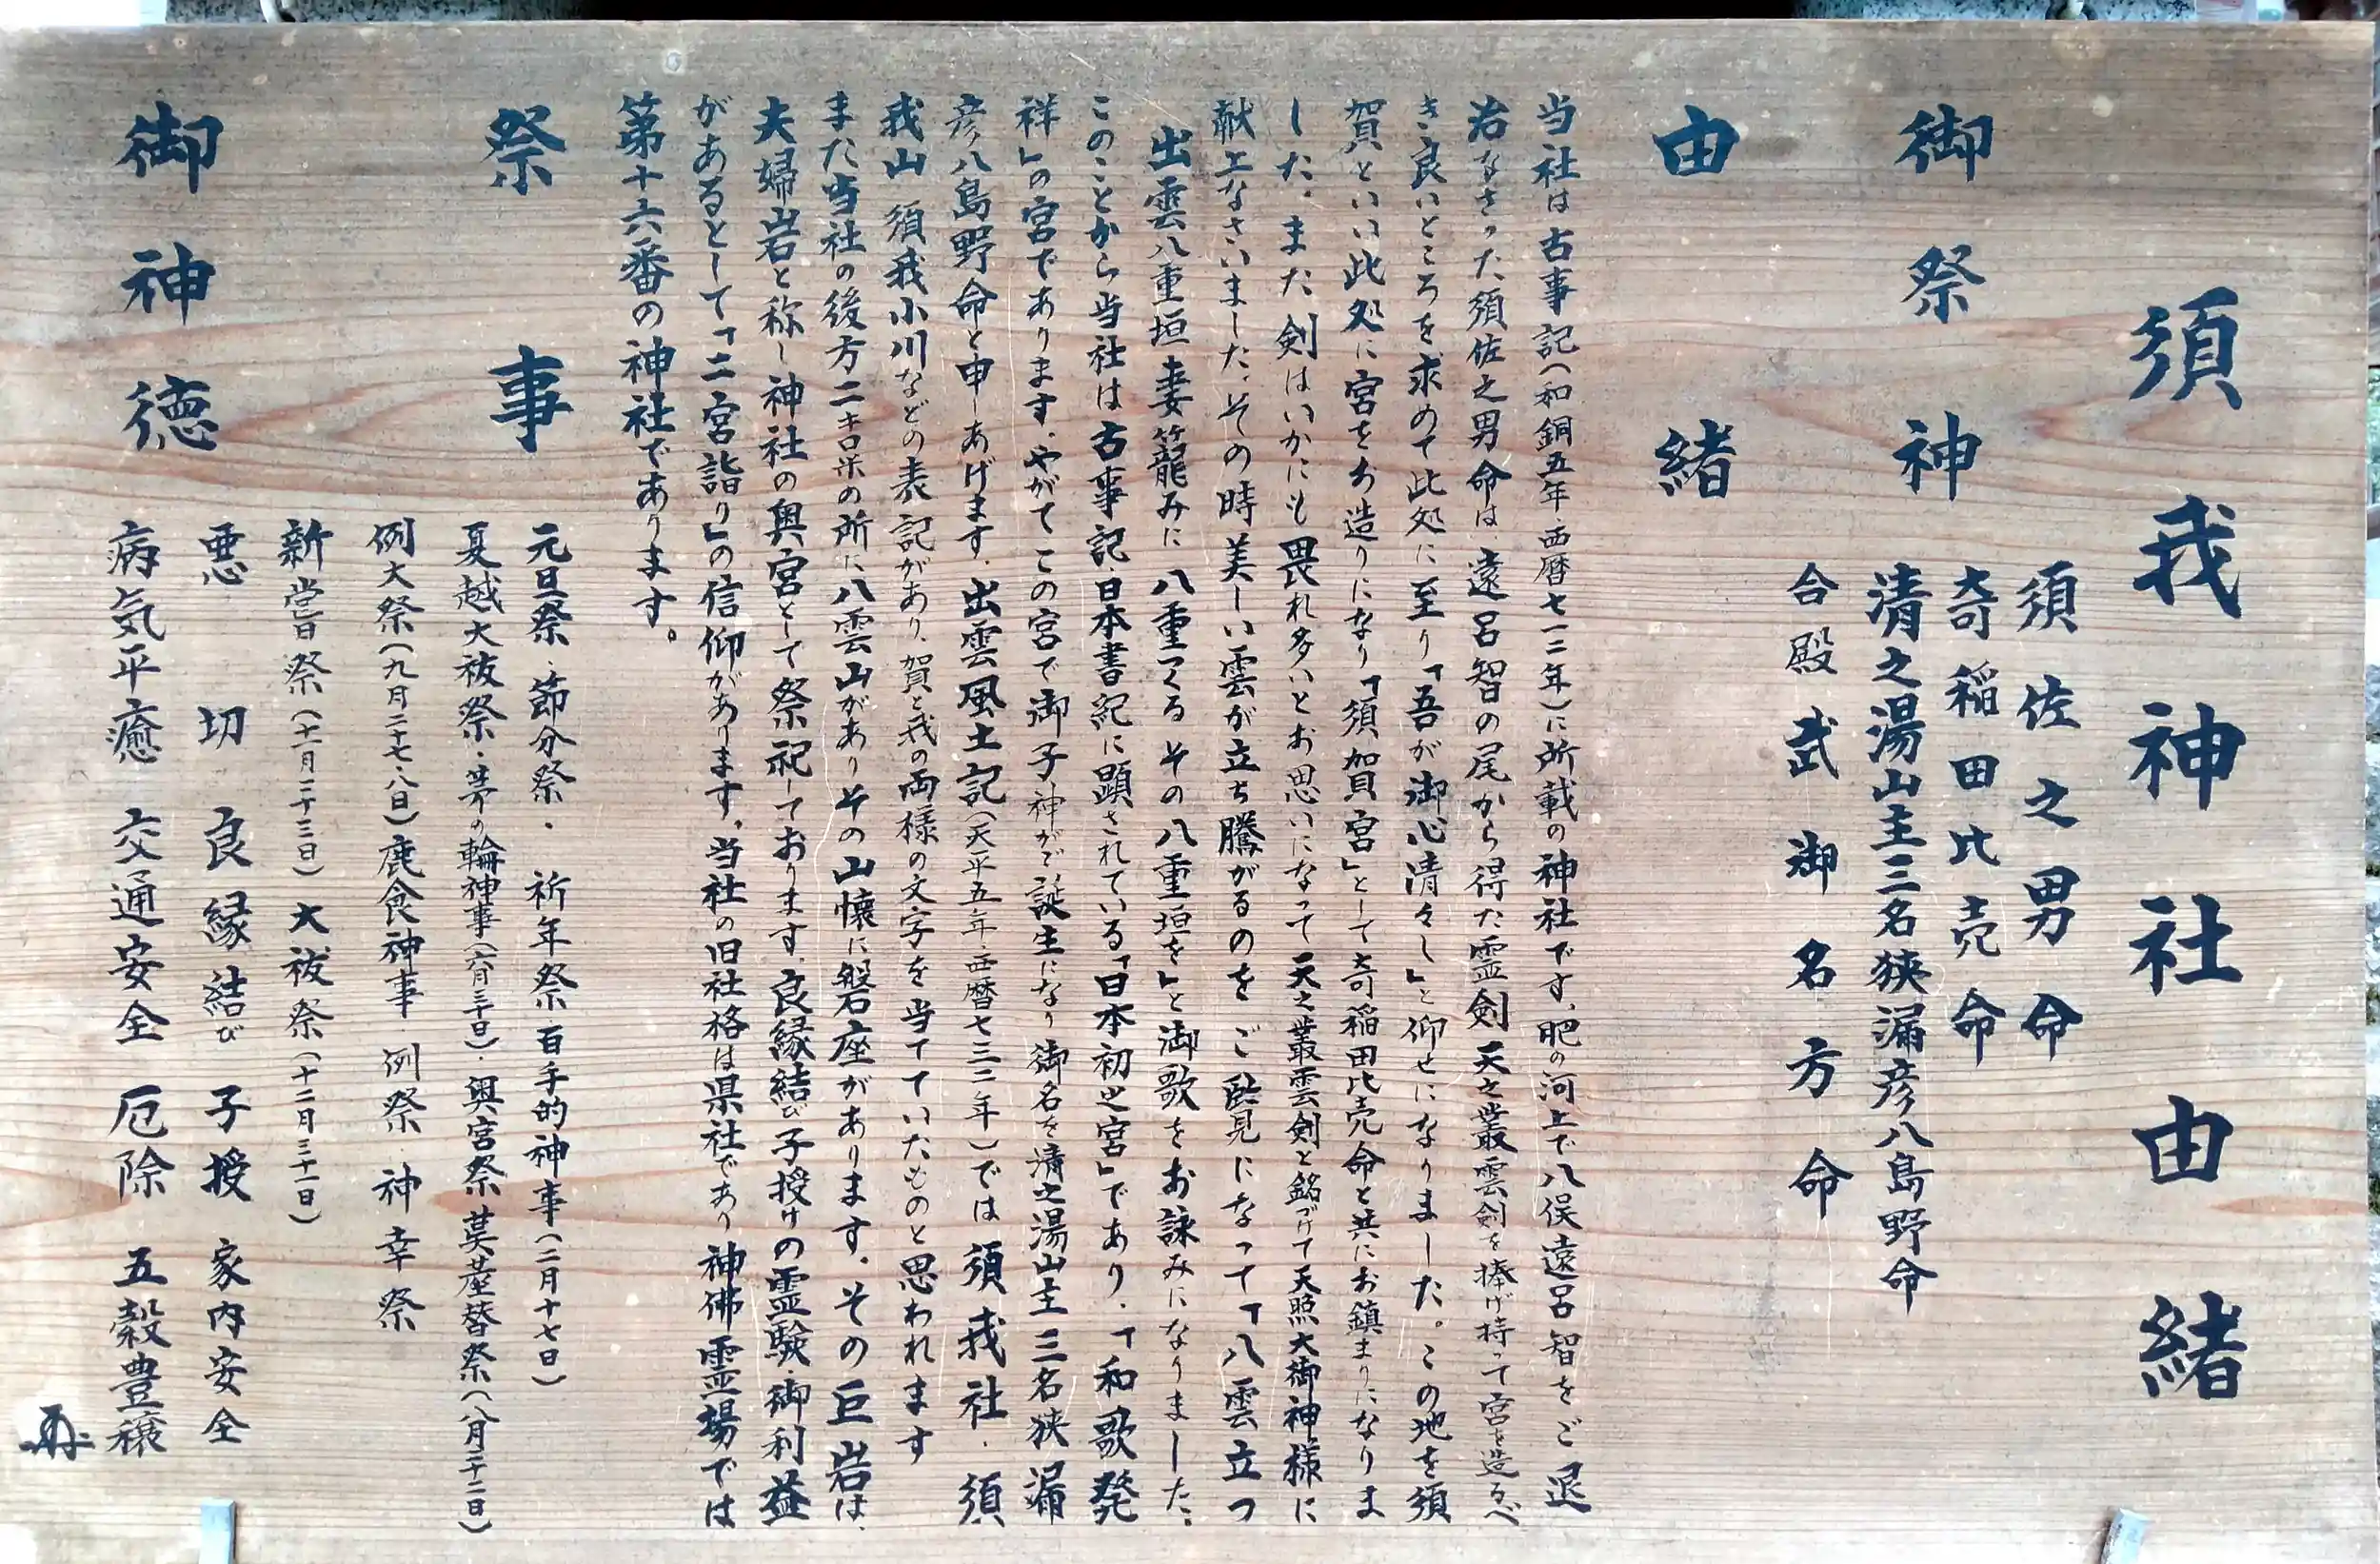 須我神社由緒
御祭神
須佐之男命
奇稲田比売命
清之湯山主三名狭漏彦八島野命
合殿 武御名方命
由緒
当社は古事記(和銅五年・西暦七一二年)に所載の神社です。肥の河上で八俣遠呂智をご退
治なさった須佐之男命は、遠呂智の尾から得た霊剣天之叢雲剣を捧げ持って宮を造るべ
き良いところを求めて此処に至り「吾が御心清々し」と仰せになりました。この地を須
賀といい此処に宮をお造りになり「須賀宮」として奇稲田比売命と共にお鎮まりになりま
した。また剣はいかにも畏れ多いとお思いになって天之叢雲剣と銘づけて天照大御神様に
献上なさいました。その時美しい雲が立ち騰がるのをご覧になって「八雲立つ
出雲八重垣 妻籠みに 八重つくる その八重垣を」と御歌をお詠みになりました。
このことから当社は古事記日本書紀に顕されている「日本初之宮」であり、「和歌発
祥」の宮であります。やがてこの宮で御子神がご誕生になり御名を清之湯山主三名狭漏
彦八島野命と申しあげます。出雲風土記(天平五年・西暦七三二年)では須我社、須
我山 須我小川などの表記があり、賀と我の両様の文字を当てていたものと思われます
また当社の後方二キロ米の所に八雲山がありその山懐に磐座があります。その巨岩は、
夫婦岩と称し神社の奥宮として祭祀しております。良縁結び子授けの霊験、御利益
があるとして「二宮詣り」の信仰があります。当社の旧社格は県社であり神佛霊場では
第十六番の神社であります。
祭事
元旦祭、節分祭・ 祈年祭・百手的神事(二月十七日)
夏越大祓祭・茅の輪神事(六月三十日)・奥宮祭 茣蓙替祭(八月二十二日)
例大祭(九月二十七・八日)鹿食神事・例祭・神幸祭
新嘗祭(十一月二十三日)大祓祭(十二月三十一日)
御神徳
悪切 良縁結び 子授 家内安全
病気平癒 交通安全 厄除 五穀豊穣